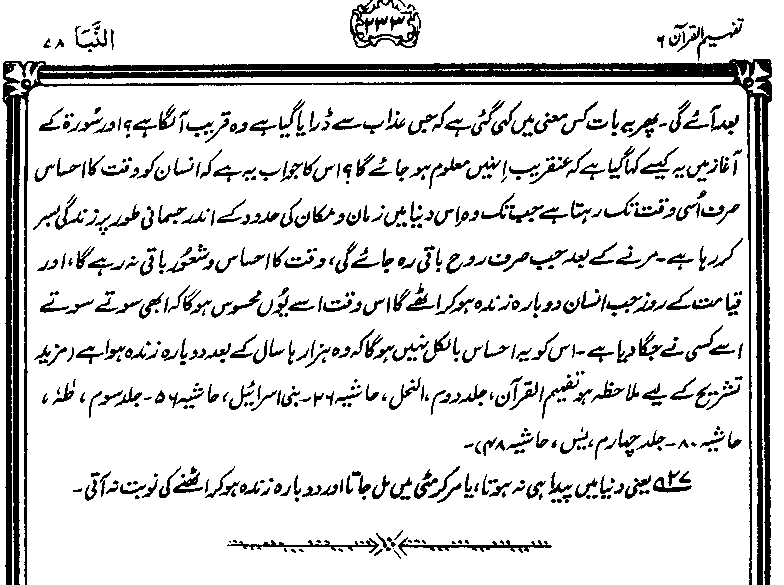 تفہیم القرآن ۶
۲۳۳
النَّبَا ۷۸
بعد آئے گی۔ پھر یہ بات کس معنی میں کہی گئی ہے کہ جس عذاب سے ڈرایا گیا ہے وہ قریب آ لگا ہے؟ اور سُورۃ کے
آغاز میں یہ کیسے کہا گیا ہے کہ عنقریب اِنہیں معلوم ہو جائے گا؟ اس کا جواب یہ ہے کہ انسان کو وقت کا احساس
صرف اُسی وقت تک رہتا ہے جب تک وہ اِس دنیا میں زمان و مکان کی حدود کے اندر جسمانی طور پر زندگی بسر
کر رہا ہے۔ مرنے کے بعد جب صرف روح باقی رہ جائے گی، وقت کا احساس و شعُور باقی نہ رہے گا، اور
قیامت کے روز جب انسان دوبارہ زندہ ہو کر اٹھے گا اس وقت اسے یوں محسوس ہوگا کہ ابھی سوتے سوتے
اسے کسی نے جگا دیا ہے۔ اس کو یہ احساس بالکل نہیں ہوگا کہ وہ ہزارہا سال کے بعد دوبارہ زندہ ہوا ہے (مزید
تشریح کے لیے ملاحظہ ہو تفہیم القرآن، جلد دوم، النحل، حاشیہ ۲۶۔ بنی اسرائیل، حاشیہ ۵۶۔ جلد سوم، طٰہٰ،
حاشیہ ۸۰۔ جلد چہارم، یٰس، حاشیہ ۴۸)۔
۲۷؎ یعنی دنیا میں پیدا ہی نہ ہوتا، یا مر کر مٹی میں مل جاتا اور دوبارہ زندہ ہو کر اٹھنے کی نوبت نہ آتی۔